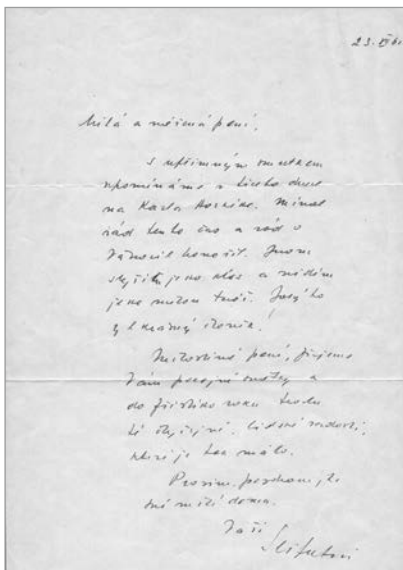 Milá a vážená paní,
s upřímným smutkem
vzpomínáme v těchto dnech
na Karla Míval
rád tento čas a rád o
Vánocích Znovu
slyším jeho hlas a vidím
jeho milou tvář. Jaký to
byl krásný člověk!
Milostivá paní, přejeme
Vám pokojné svátky a
do příštího roku trochu
té obyčejné, lidské radosti,
které je tak málo.
Prosím, pozdravujte
své milé doma.
Vaši
Seifertovi